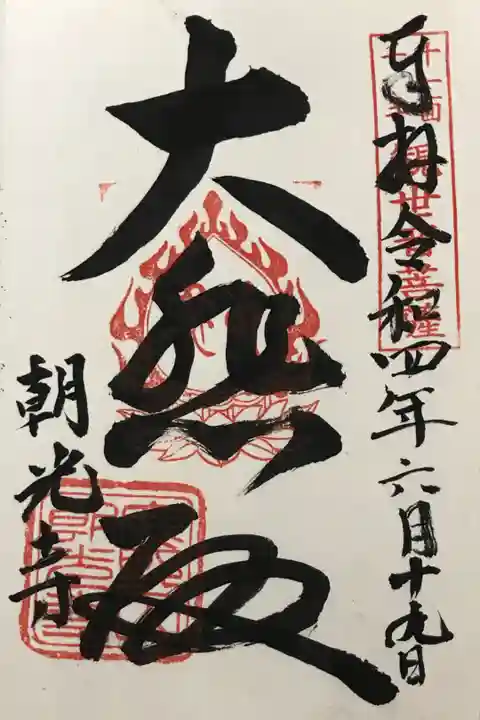 奉拝 令和四年六月十九日
大悲殿
朝光寺